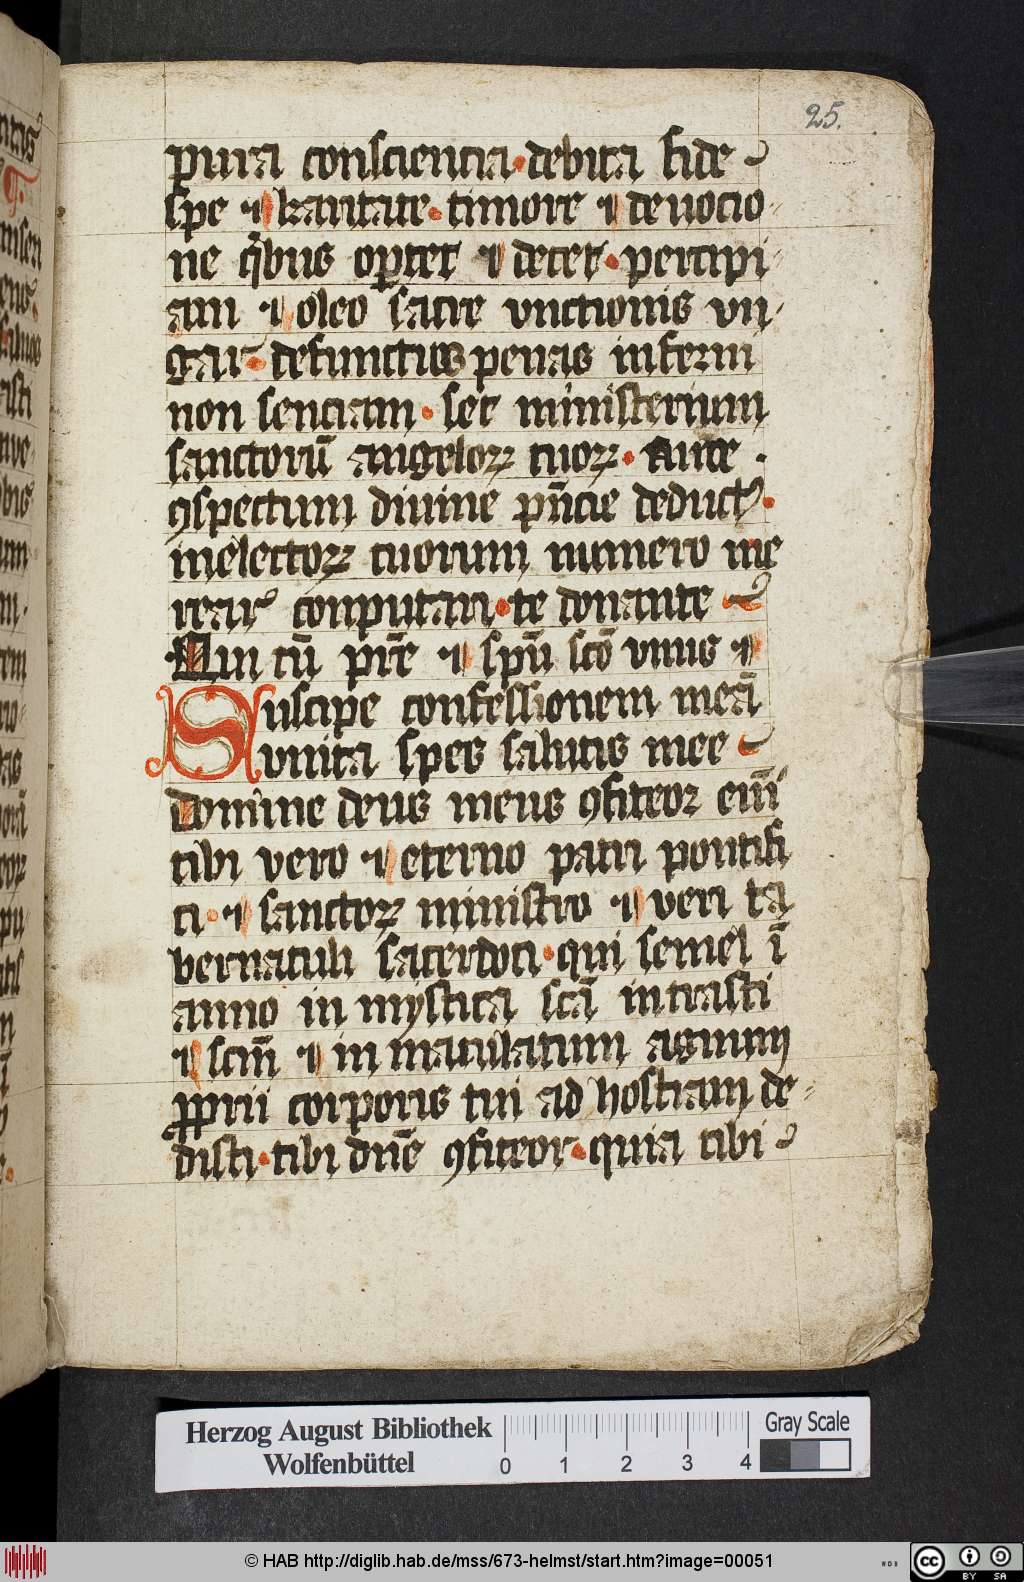 25.
pura consciencia · debita fide
spe ⁊ karitate · timore ⁊ deuocio
ne q̄bus oꝑtet ⁊ decet · percipi
am ⁊ oleo sacre vnctionis vn
gar · defunctus penas inferni
non senciam · set ministerium
sanctorū angeloꝝ tuoꝝ · Ante ·
ꝯspectum diuine pn̄cie deductꝰ ·
inelectoꝝ tuorum numero me
rear conputari · te donante
Qui cū pr̄e ⁊ spū scō viuis ⁊
Suscipe confessionem meā
vnita spes salutis mee
domine deus meus ꝯfiteor eni̅
tibi vero ⁊ eterno patri pontifi
ci · ⁊ sanctoꝝ ministro ⁊ veri ta
bernaculi sacerdoti · qui semel ī
anno in mystica scā intrasti
⁊ scm̄ ⁊ in maculatum agnum
ꝓprii corporis tui ad hostiam de
disti · tibi dn̄e ꝯfiteor · quia tibi
Herzog August Bibliothek
Wolfenbüttel
0 1 2 3 4
Gray Scale
© HAB http://diglib.hab.de/mss/673-helmst/start.htm?image=00051
WDB
cc BY SA